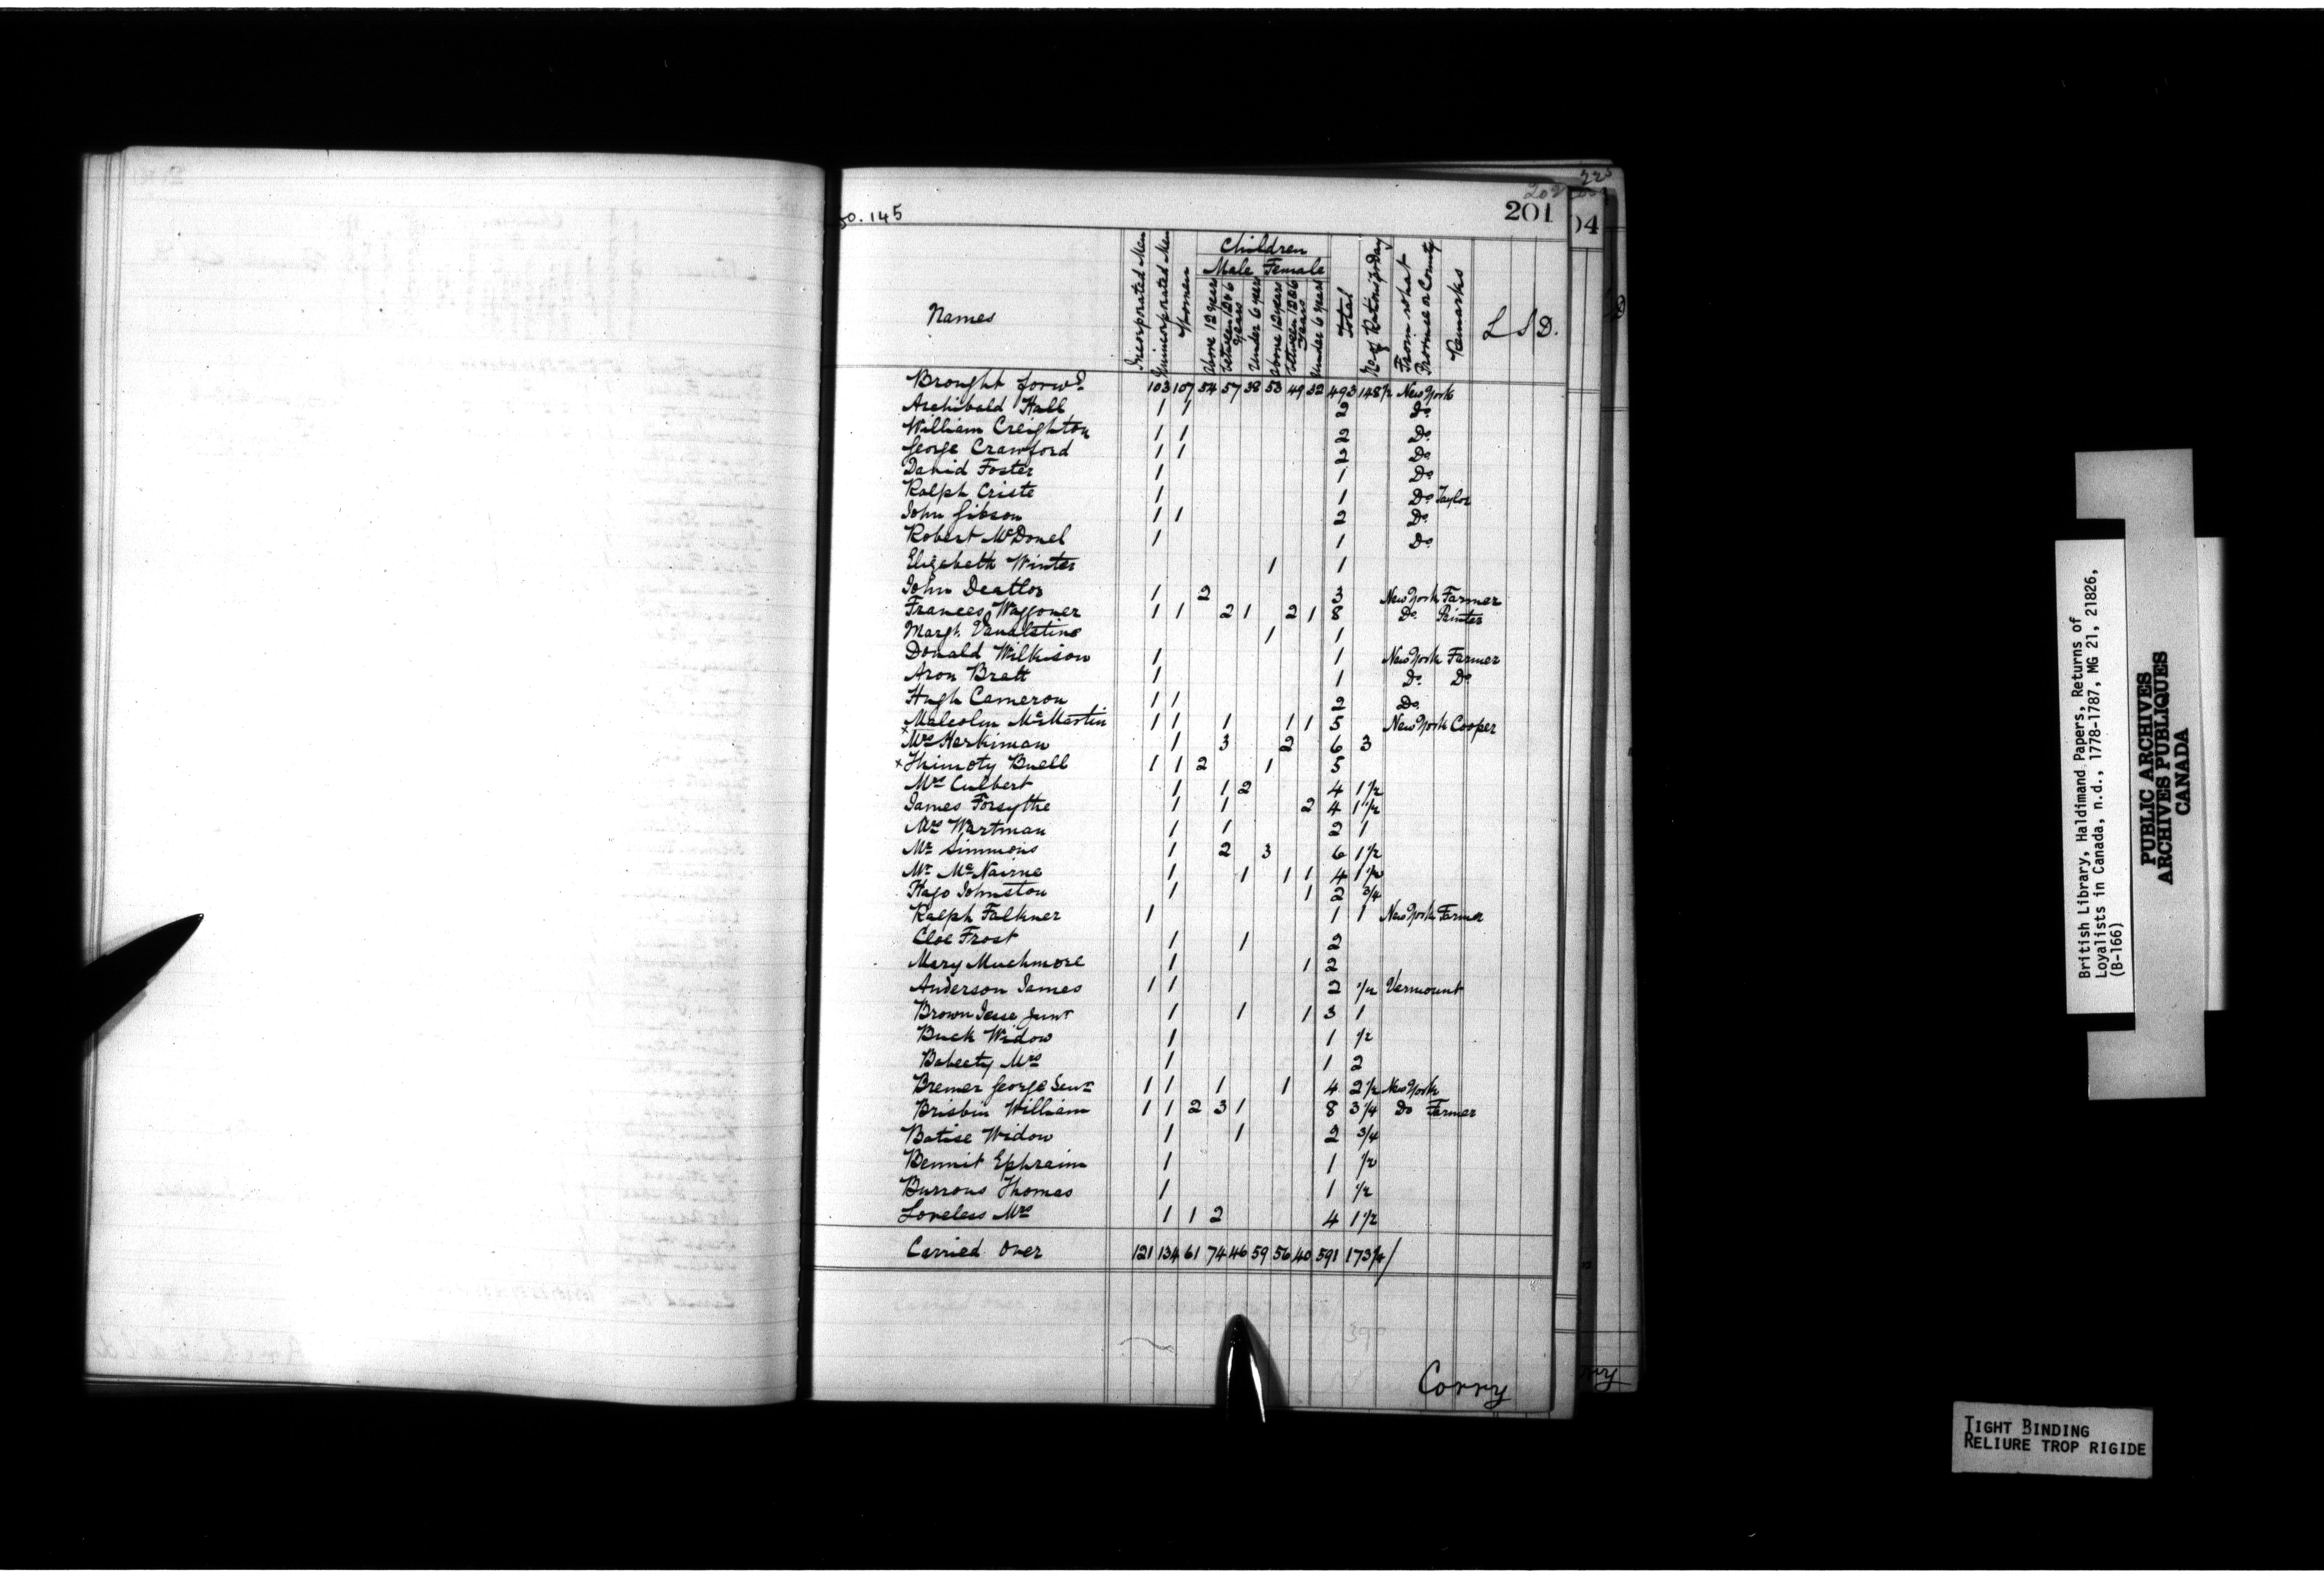 225
202
fo. 145 201 04
Children
Male Female
Names Incorporated Men Unincorporated Men Women Above 12 years between 12 & 6 Years Under 6 years Above 12 years between 12 & 6 Years Under 6 years Total No of Rations pr Day From what Province or County Remarks L S D.
Brought forwd 103 107 54 57 38 53 49 32 493 148 1/2 New York
Archibald Hall 1 1 2 Do
William Creighton 1 1 2 Do
George Crawford 1 1 2 Do
David Foster 1 1 Do
Ralph Criste 1 1 Do Taylor
John Gibson 1 1 2 Do
Robert McDonel 1 1 Do
Elizabeth Winter 1 1
John Deattor 1 2 3 New York Farmer
Frances Waggoner 1 1 2 1 2 1 8 Do Painter
Margt. Vanalstine 1 1
Donald Wilkison 1 1 New York Farmer
Aron Bratt 1 1 Do Do
Hugh Cameron 1 1 2 Do
Malcolm McMartin 1 1 1 1 1 5 New York Cooper
x Mrs Harkiman 1 3 2 6 3
x Thimoty Buell 1 1 2 1 5
Mrs Culbert 1 1 2 4 1 1/2
James Forsythe 1 1 2 4 1 1/2
Mrs Wartman 1 1 2 1
Mr Simmons 1 2 3 6 1 1/2
Mr McNairne 1 1 1 1 4 1 1/2
Hago Johnston 1 1 2 3/4
Ralph Falkner 1 1 1 New York Farmer
Cloe Frost 1 1 2
Mary Muchmore 1 1 2
Anderson James 1 1 2 1/2 Vermount
Brown Jesse Junr 1 1 1 3 1
Buck Widow 1 1 1/2
Baheety Mrs 1 1 2
Bremer George Senr 1 1 1 1 4 2 1/2 New York
Brisbin William 1 1 2 3 1 8 3 1/4 Do Farmer
Batise Widow 1 1 2 3/4
Bennit Ephraim 1 1 1/2
Burrous Thomas 1 1 1/2
Loveless Mrs 1 1 2 4 1 1/2
Carried Over 121 134 61 74 46 59 56 40 591 173 3/4
390
Corry
British Library, Haldimand Papers, Returns of
Loyalists in Canada, n.d., 1778-1787, MG 21, 21826,
(B-166)
PUBLIC ARCHIVES
ARCHIVES PUBLIQUES
CANADA
TIGHT BINDING
RELIURE TROP RIGIDE